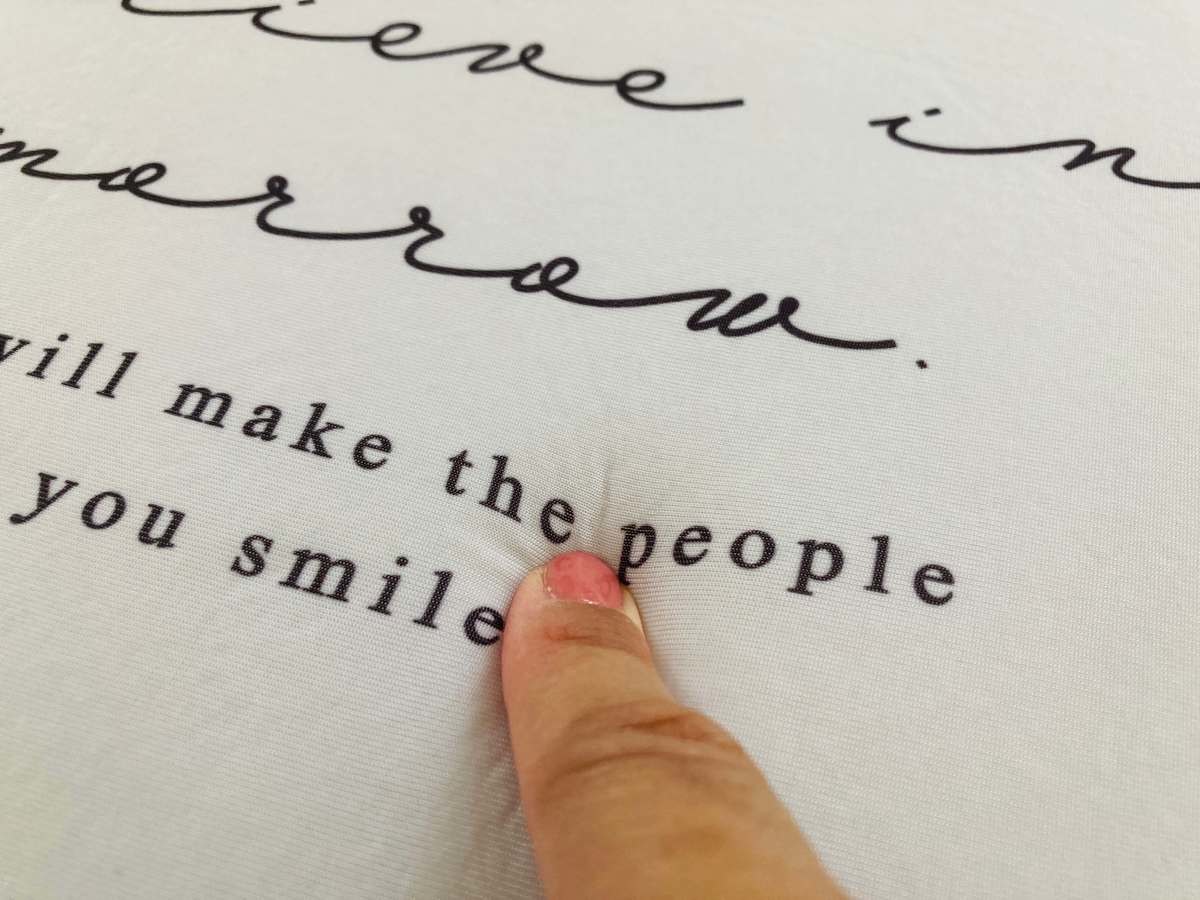 lieve in
morrow.
will make the people
you smile